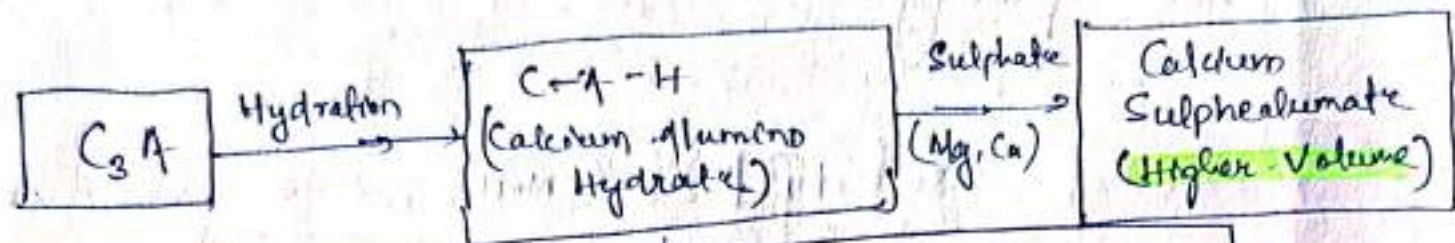 C₃A
Hydration
C-A-H
(Calcium Alumino
Hydrate)
Sulphate
(Mg, Ca)
Calcium
Sulphealumate
(Higher Volume)